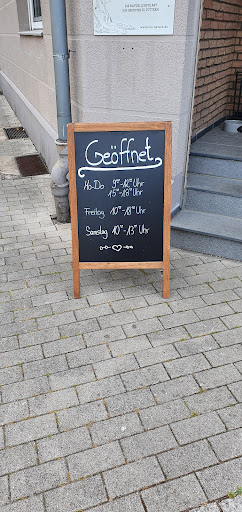 Geöffnet
Mo-Do 9⁰⁰-12⁰⁰ Uhr
15⁰⁰-18⁰⁰ Uhr
Freitag 10⁰⁰-18⁰⁰ Uhr
Samstag 10⁰⁰-13 Uhr